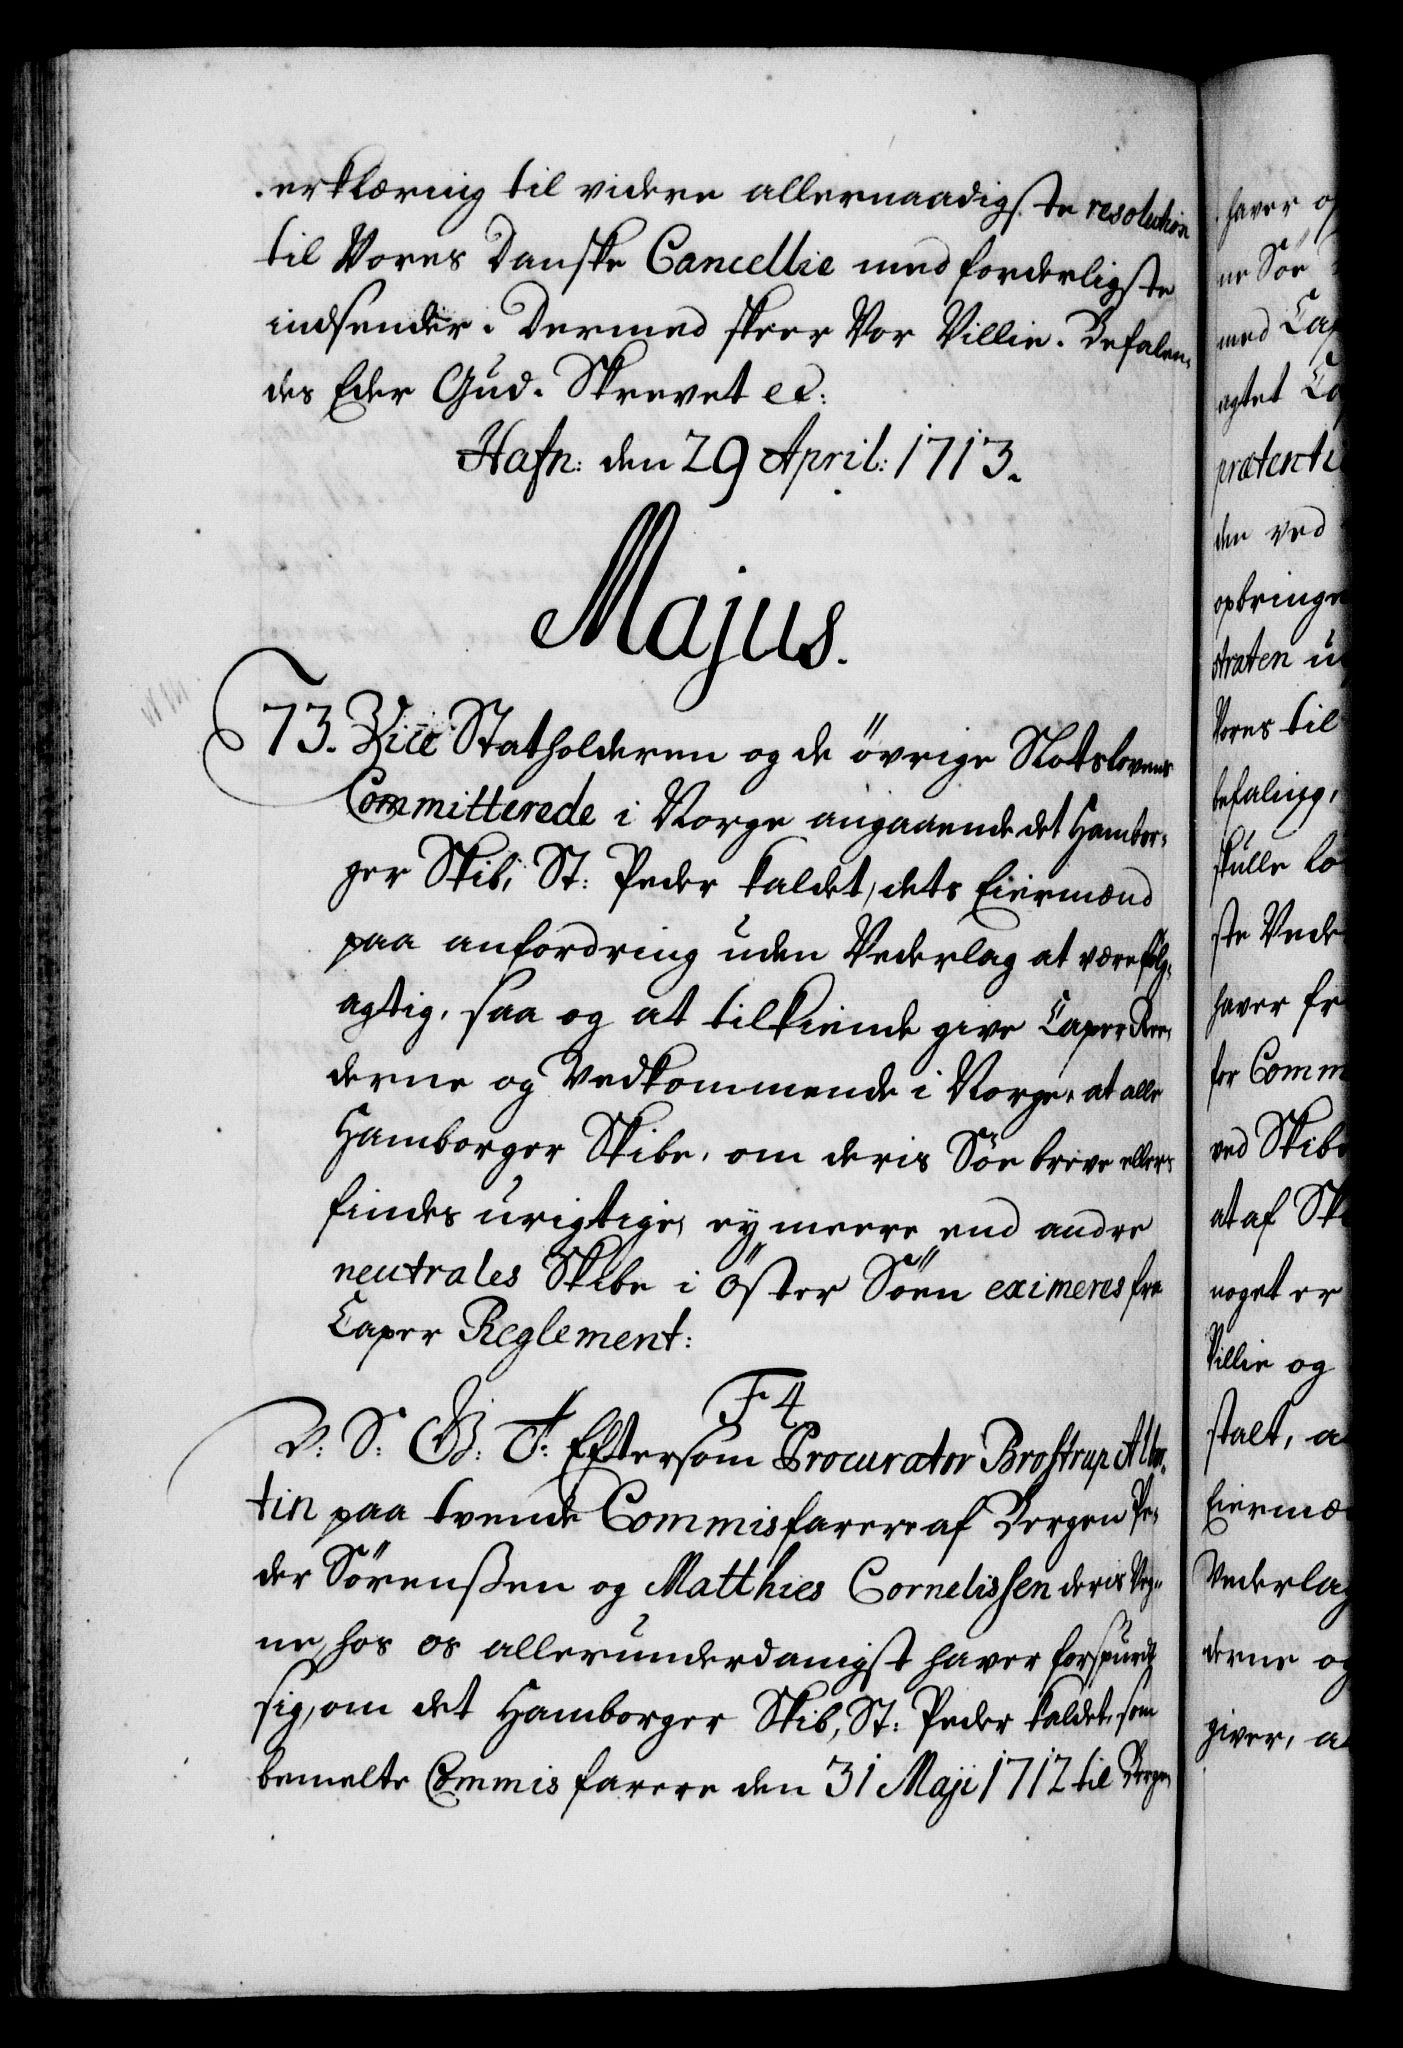 erklæring til videre allernaadigste resolution
til Vores Danske Cancellie med forderligste
indsender. Dermed skeer Vor Villie. Befalen-
des Eder Gud. Skrevet etc:
Hafn: den 29 April: 1713.
Majus.
73. Vice Statholderen og de övrige Slotslovens
Committerede i Norge angaaende det Hambor-
ger Skib, St: Peder kaldet, dets Eiermænd
paa anfordring uden Vederlag at være følg-
agtig, saa og at tilkiende give Caper Ree-
derne og Vedkommende i Norge, at alle
Hamborger Skibe, om deris Söe breve ellers
findes urigtige, ey meere end andre
neutrales Skibe i Öster Söen eximeres fra
Caper Reglement:
F 4
V: S: G: T: Eftersom Procurator Brostrup Alber-
tin paa tvende Commisfarere af Bergen Pe-
der Sörenßen og Matthies Cornelissen deris Veg-
ne, hos os allerunderdanigst haver forspurdt
sig, om det Hamborger Skib, St: Peder kaldet, som
bemelte Commisfarere den 31 Maji 1712 til Bergen
haver op
ne Söe
med Cap
agtet Ca
prætenti
den ved
opbringe
straten u
Vores til
befaling,
skulle lo
ste Vede
haver fr
for Comm
ved Skibe
at af Sk
noget er
Villie og
stalt, a
Eiermæ
Vederlag
derne og
giver, a